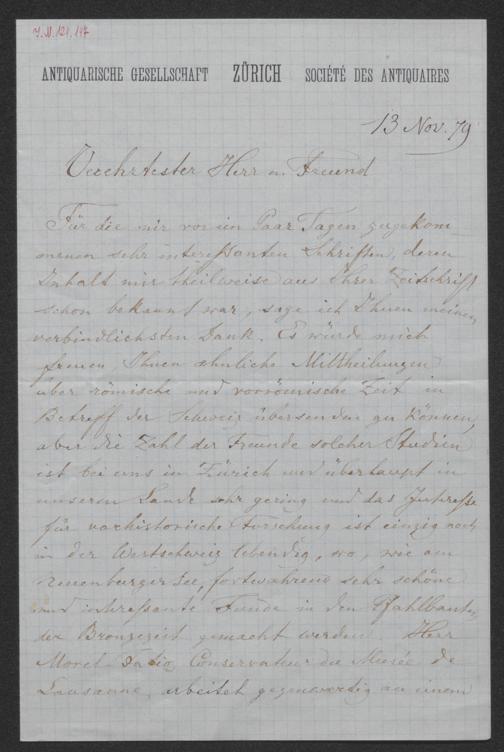 J.N. 121.147
ANTIQUARISCHE GESELLSCHAFT ZÜRICH SOCIÉTÉ DES ANTIQUAIRES
13 Nov. 79
Verehrtester Herr u. Freund
Für die mir vor ein Paar Tagen zugekom
menen sehr interessanten Schriften, deren
Inhalt mir theilweise aus Ihrer Zeitschrift
schon bekannt war, sage ich Ihnen meinen
verbindlichsten Dank. Es würde mich
freuen, Ihnen ähnliche Mittheilungen
über römische und vorrömische Zeit in
Betreff der Schweiz übersenden zu können,
aber die Zahl der Freunde solcher Studien
ist bei uns in Zürich und überhaupt in
unserem Lande sehr gering und das Interesse
für vorhistorische Forschung ist einzig noch
in der Westschweiz lebendig, wo, wie am
Neuenburger See, fortwährend sehr schöne
und interessante Funde in den Pfahlbauten
der Bronzezeit gemacht werden. Herr
Morel Fatio, Conservateur du Musée de
Lausanne, arbeitet gegenwärtig an einem